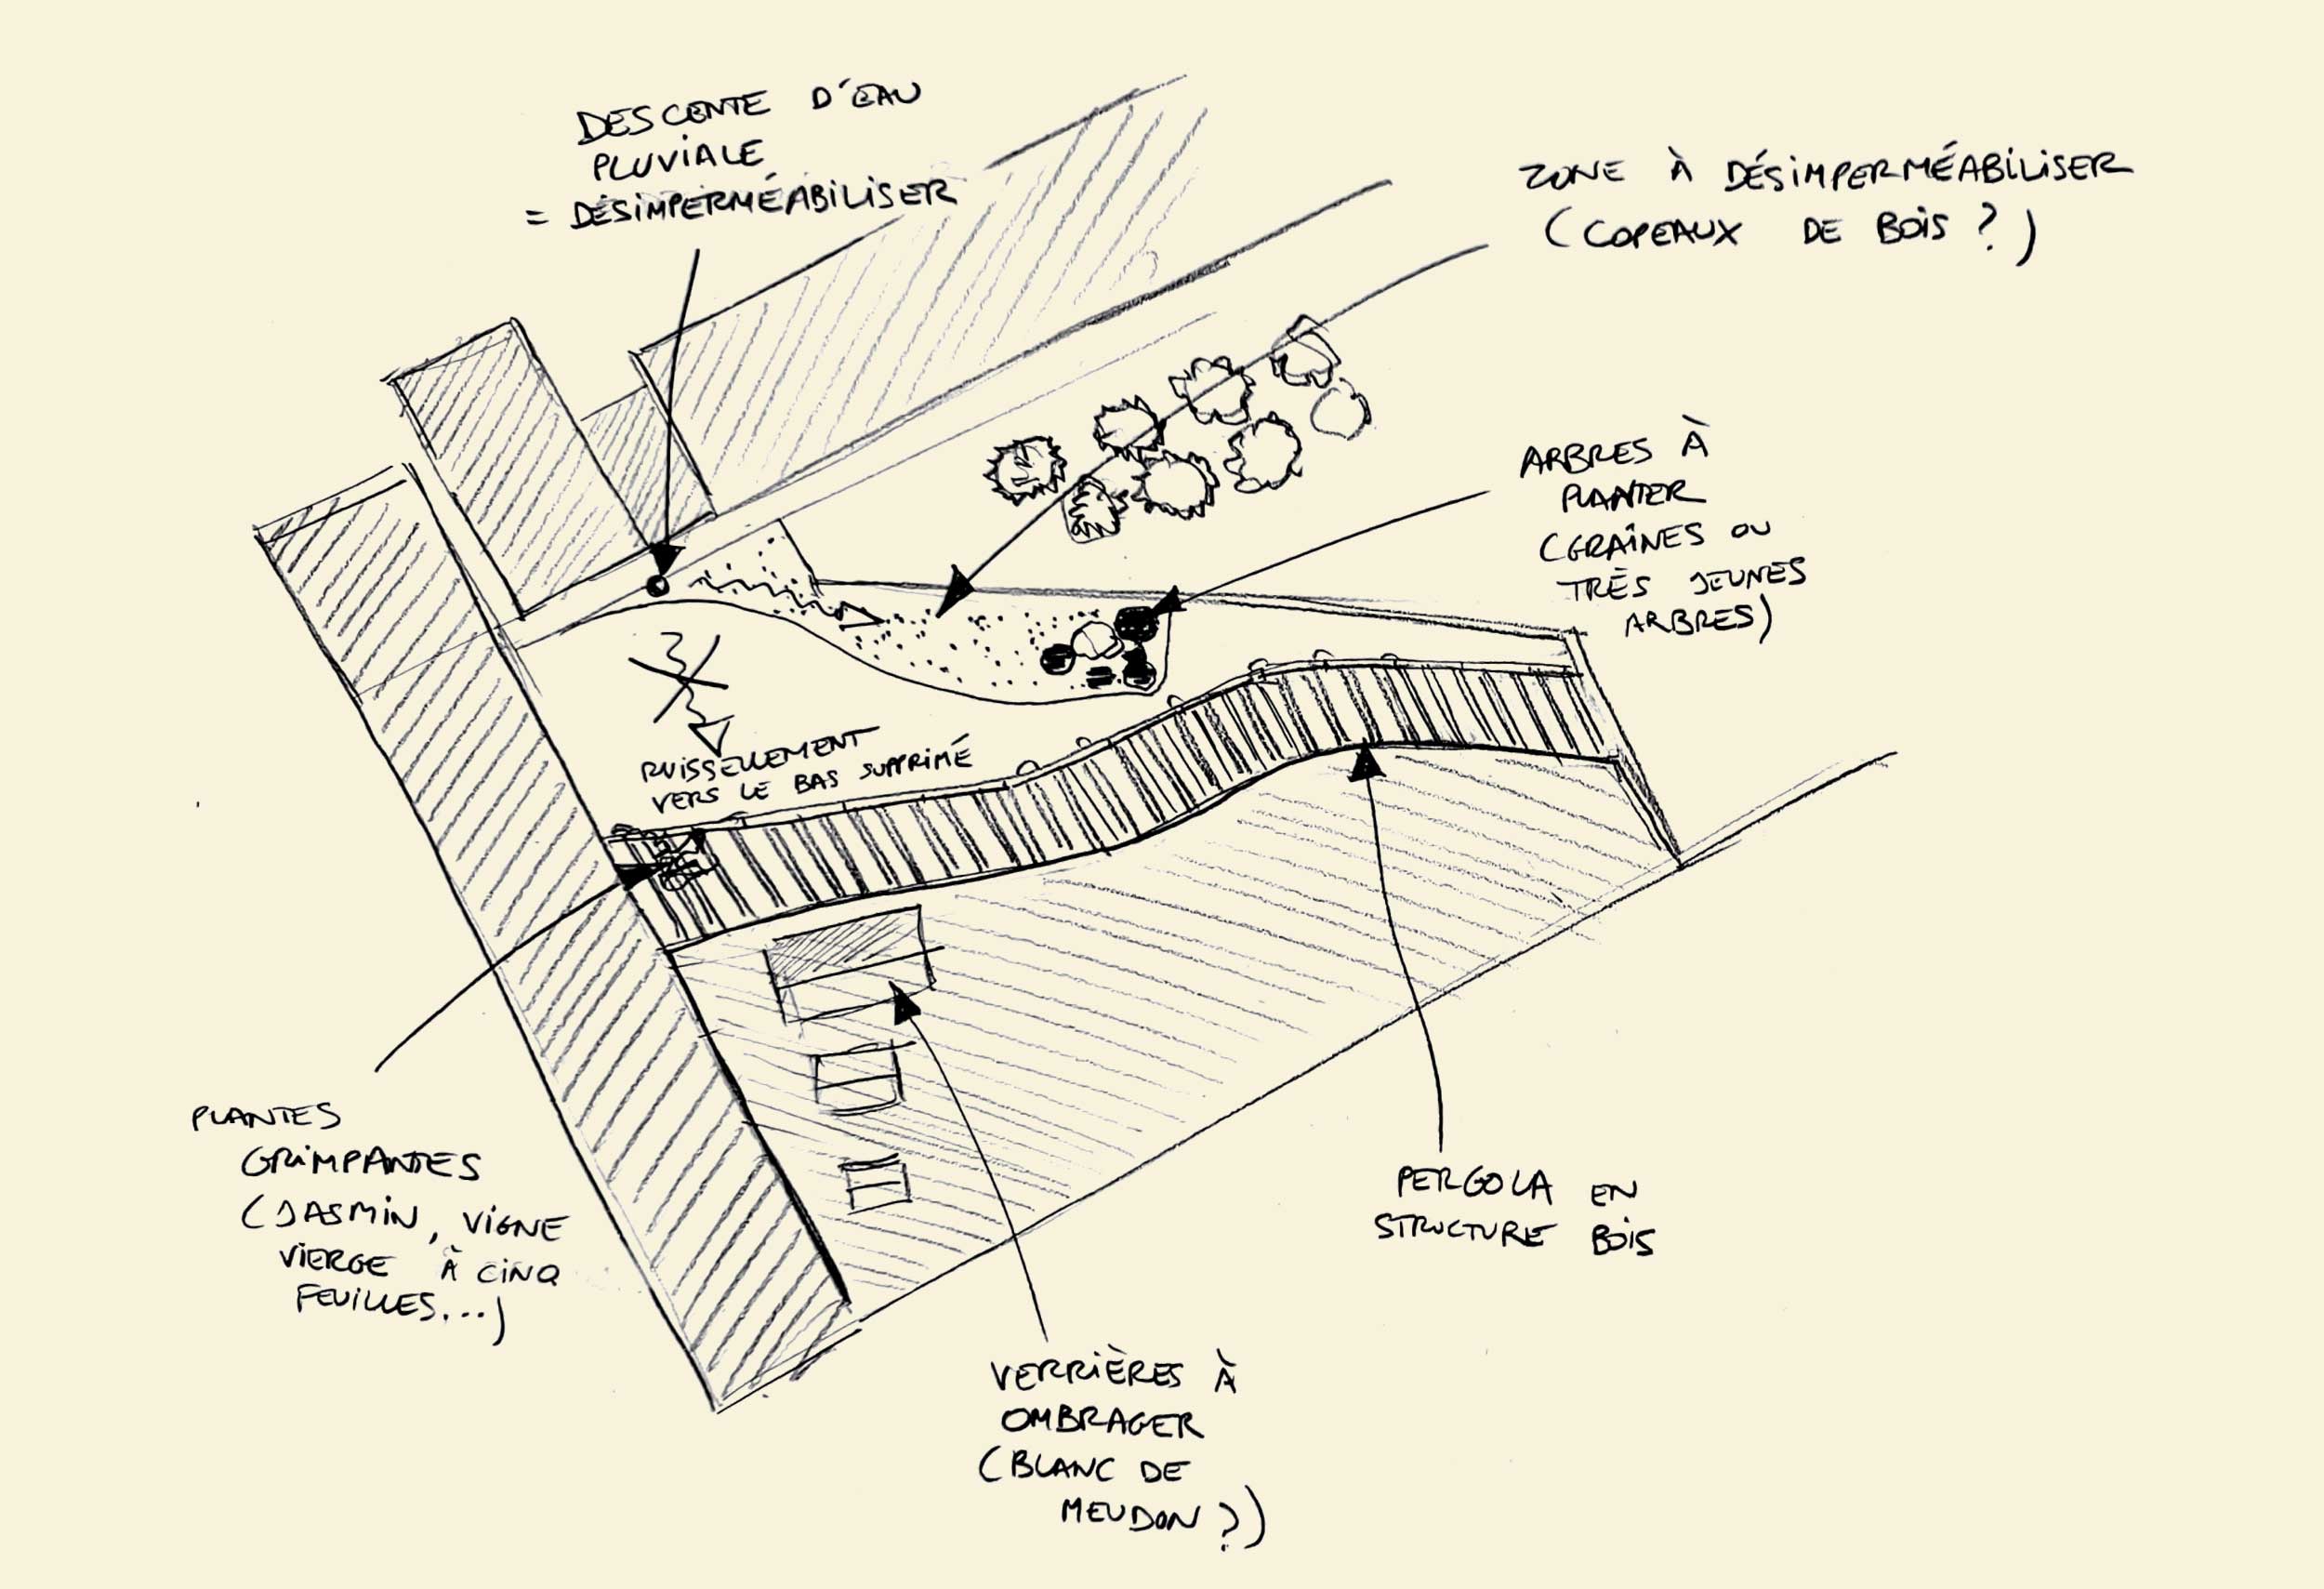 DESCENTE D'EAU
PLUVIALE
= DÉSIMPERMÉABILISER
ZONE À DÉSIMPERMÉABILISER
(COPEAUX DE BOIS ?)
ARBRES À
PLANTER
(GRAÎNES OU
TRÈS JEUNES
ARBRES)
RUISSELLEMENT
VERS LE BAS SUPPRIMÉ
PLANTES
GRIMPANTES
(JASMIN, VIGNE
VIERGE À CINQ
FEUILLES...)
PERGOLA EN
STRUCTURE BOIS
VERRIÈRES À
OMBRAGER
(BLANC DE
MEUDON ?)